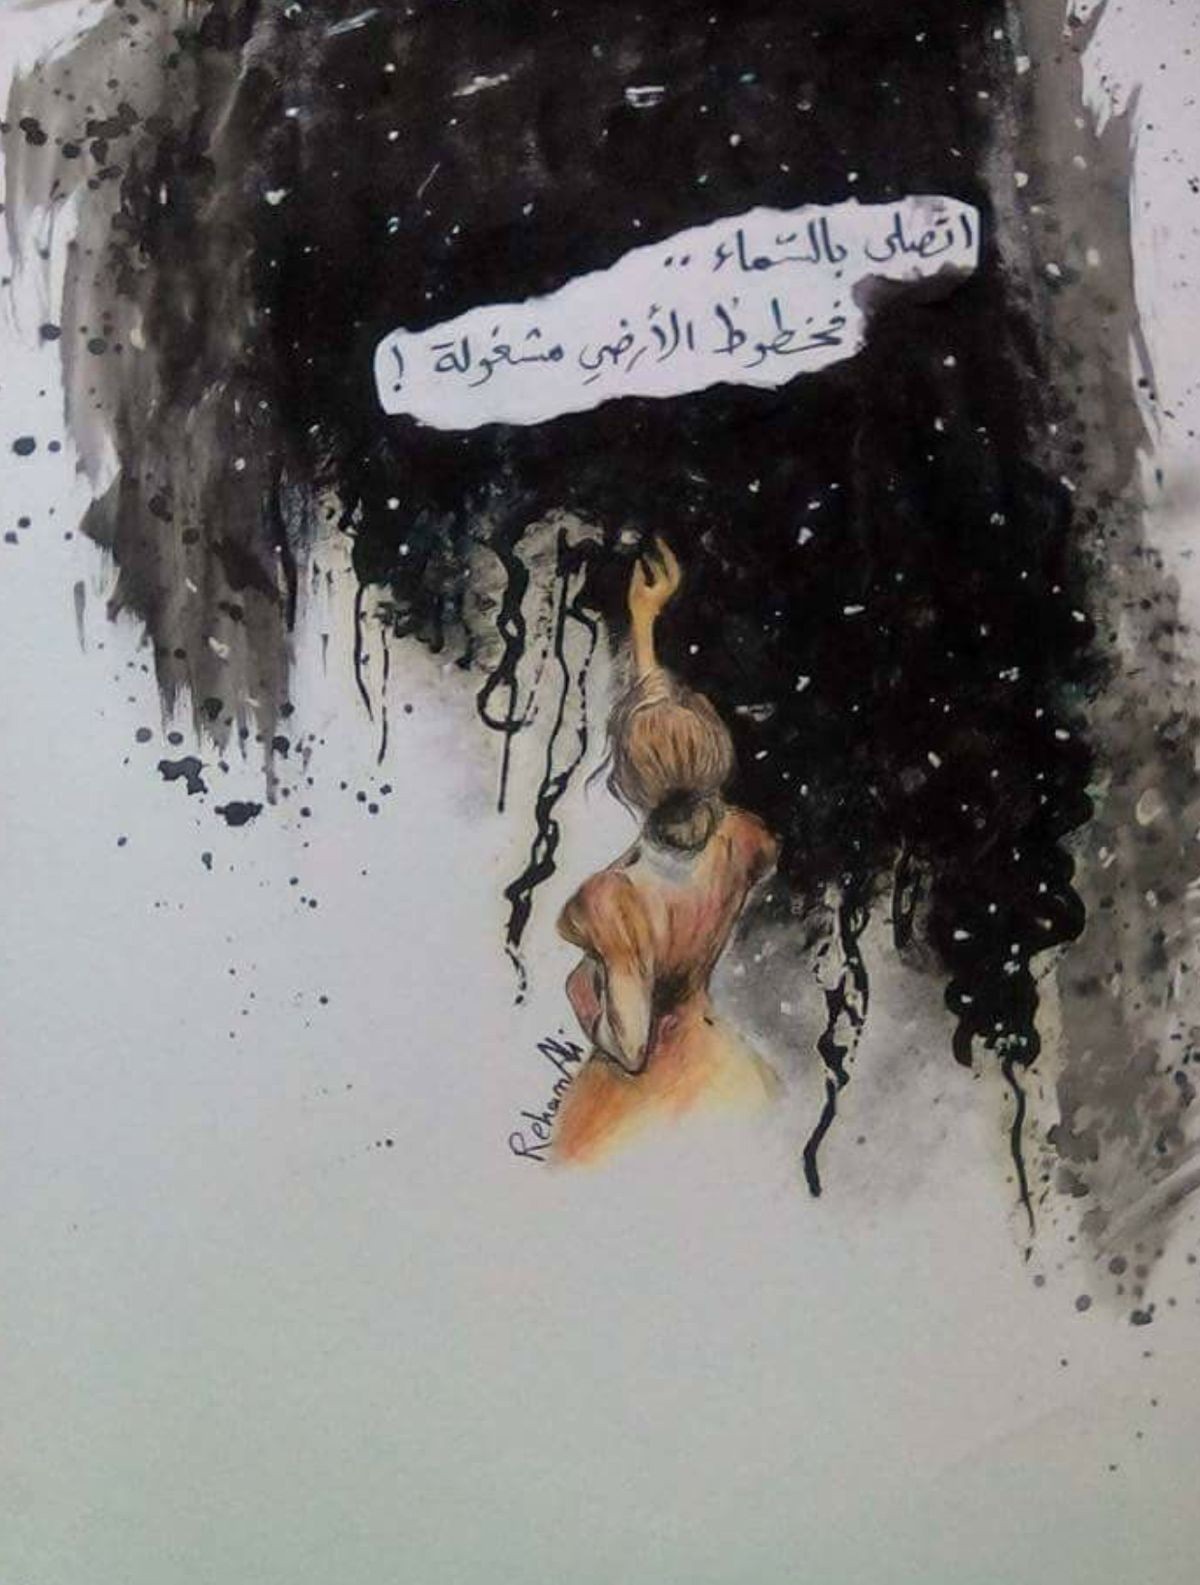 اتصلى بالسّماء ..
فخطوطُ الأرضِ مشغولة !
Reham Ali